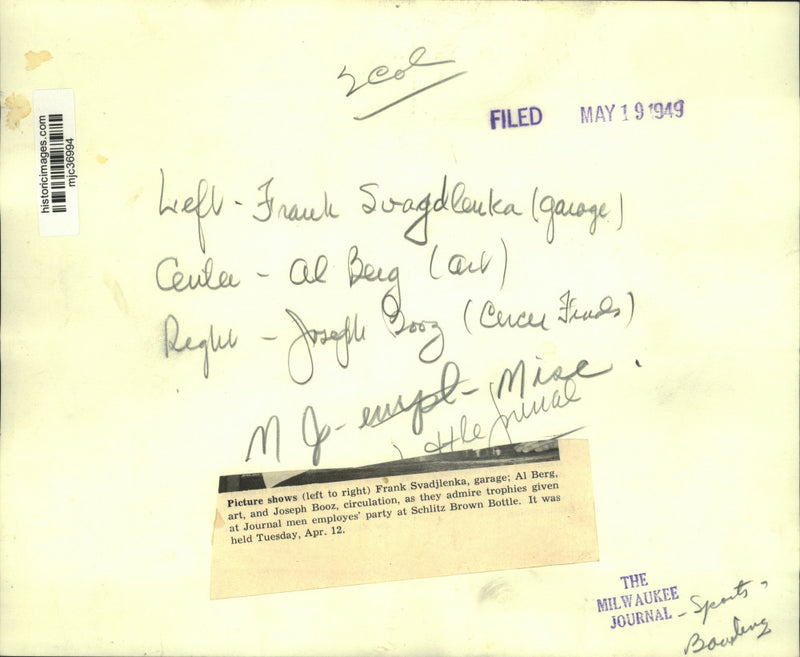 2 Col
FILED MAY 19 1949
historicimages.com
mjc36994
Left - Frank Svagdlenka (garage)
Center - Al Berg (art)
Right - Joseph Booz (Circu Funds)
M J - empl - Misc.
the Journal
Picture shows (left to right) Frank Svadjlenka, garage; Al Berg,
art, and Joseph Booz, circulation, as they admire trophies given
at Journal men employes' party at Schlitz Brown Bottle. It was
held Tuesday, Apr. 12.
THE
MILWAUKEE
JOURNAL - Sports -
Bowling